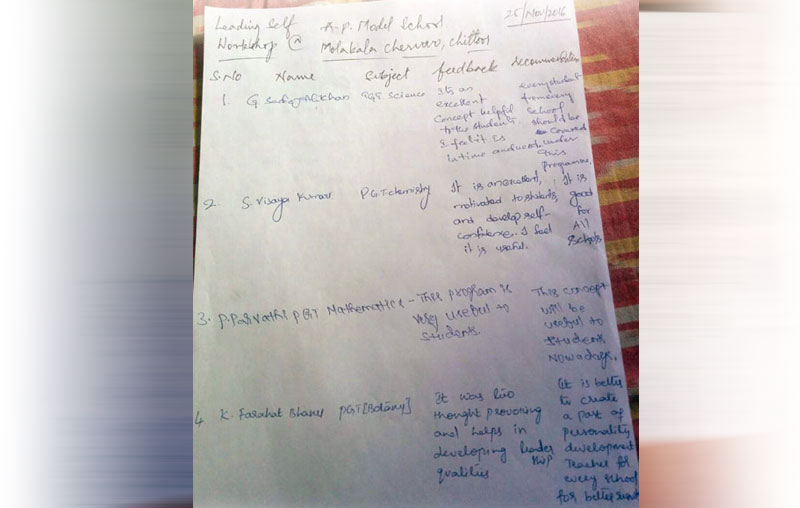 Leading Self A.P. Model School 25/Nov/2016
Workshop @ Molakala Cheruvu, Chittoor
S.NO Name Subject feedback recommendation
1. G. TGT Science
Its an
excellent
concept helpful
to the students,
I feel it is
intime and used.
every student
from every
School
should be
covered
under
this
programme.
2. S. Vijaya Kumar PGT chemistry
It is an excellent,
motivated to students,
and develop self-
confidence. I feel
it is useful.
It is
good
for
All
Schools
3. P. Parvathi PGT Mathematics - This program is
very useful to
students.
This concept
will be
useful to
students
Nowadays.
4. K. Farahat Bhanu PGT [Botany]
It was
thought provoking
and helps in
developing leader
qualities
It is better
to create
a post of
personality
development
Teacher for
every school
for better